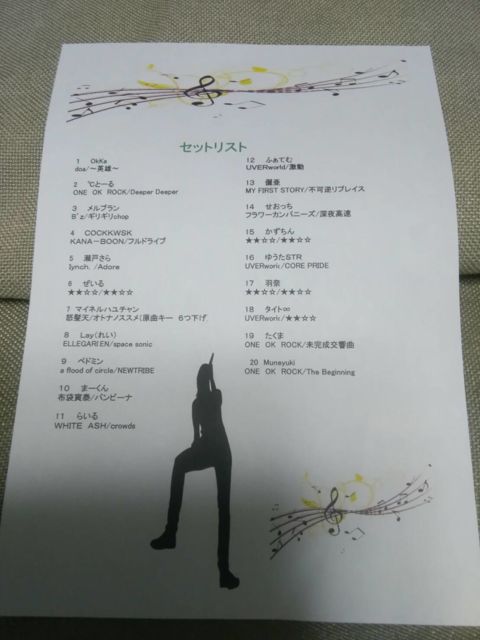 セットリスト
1 OkKa
doa/～英雄～
2 てとーる
ONE OK ROCK/Deeper Deeper
3 メルブラン
B'z/ギリギリchop
4 COCKKWSK
KANA－BOON/フルドライブ
5 瀬戸さら
lynch. /Adore
6 ぜいる
★★☆☆/★★☆☆
7 マイネルハユチャン
怒髪天/オトナノススメ(原曲キー 6つ下げ
8 Lay(れい)
ELLEGARIEN/space sonic
9 ペドミン
a flood of circle/NEWTRIBE
10 まーくん
布袋寅泰/バンビーナ
11 らいる
WHITE ASH/crowds
12 ふぁてむ
UVERworld/激動
13 儷亜
MY FIRST STORY/不可逆リプレイス
14 せおっち
フラワーカンパニーズ/深夜高速
15 かずちん
★★☆☆/★★☆☆
16 ゆうたSTR
UVERworic/CORE PRIDE
17 羽奈
★★☆☆/★★☆☆
18 タイト∞
UVERworic/★★☆☆
19 たくま
ONE OK ROCK/未完成交響曲
20 Muneyuki
ONE OK ROCK/The Beginning